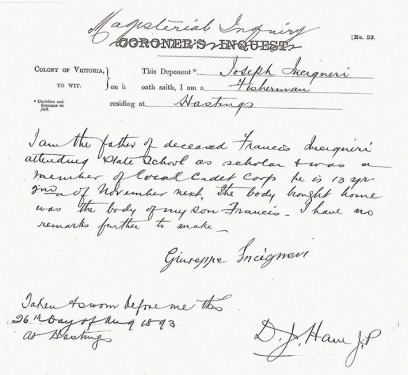 Magisterial Inquiry
CORONER'S INQUEST
(No. 53.
COLONY OF VICTORIA,
TO WIT.
* Christian and
Surname in
full.
This Deponent* Joseph Incigneri
on h oath saith, I am a Fisherman
residing at Hastings
I am the father of deceased Francis Incigneri
attending State School as scholar & was a
member of Local Cadet Corp he is 13 yrs
of November next, The body brought home
was the body of my son Francis - I have no
remarks further to make -
Giuseppe Incigneri
Taken & sworn before me this
26th Day of Aug 1893
at Hastings
D. J. J.P